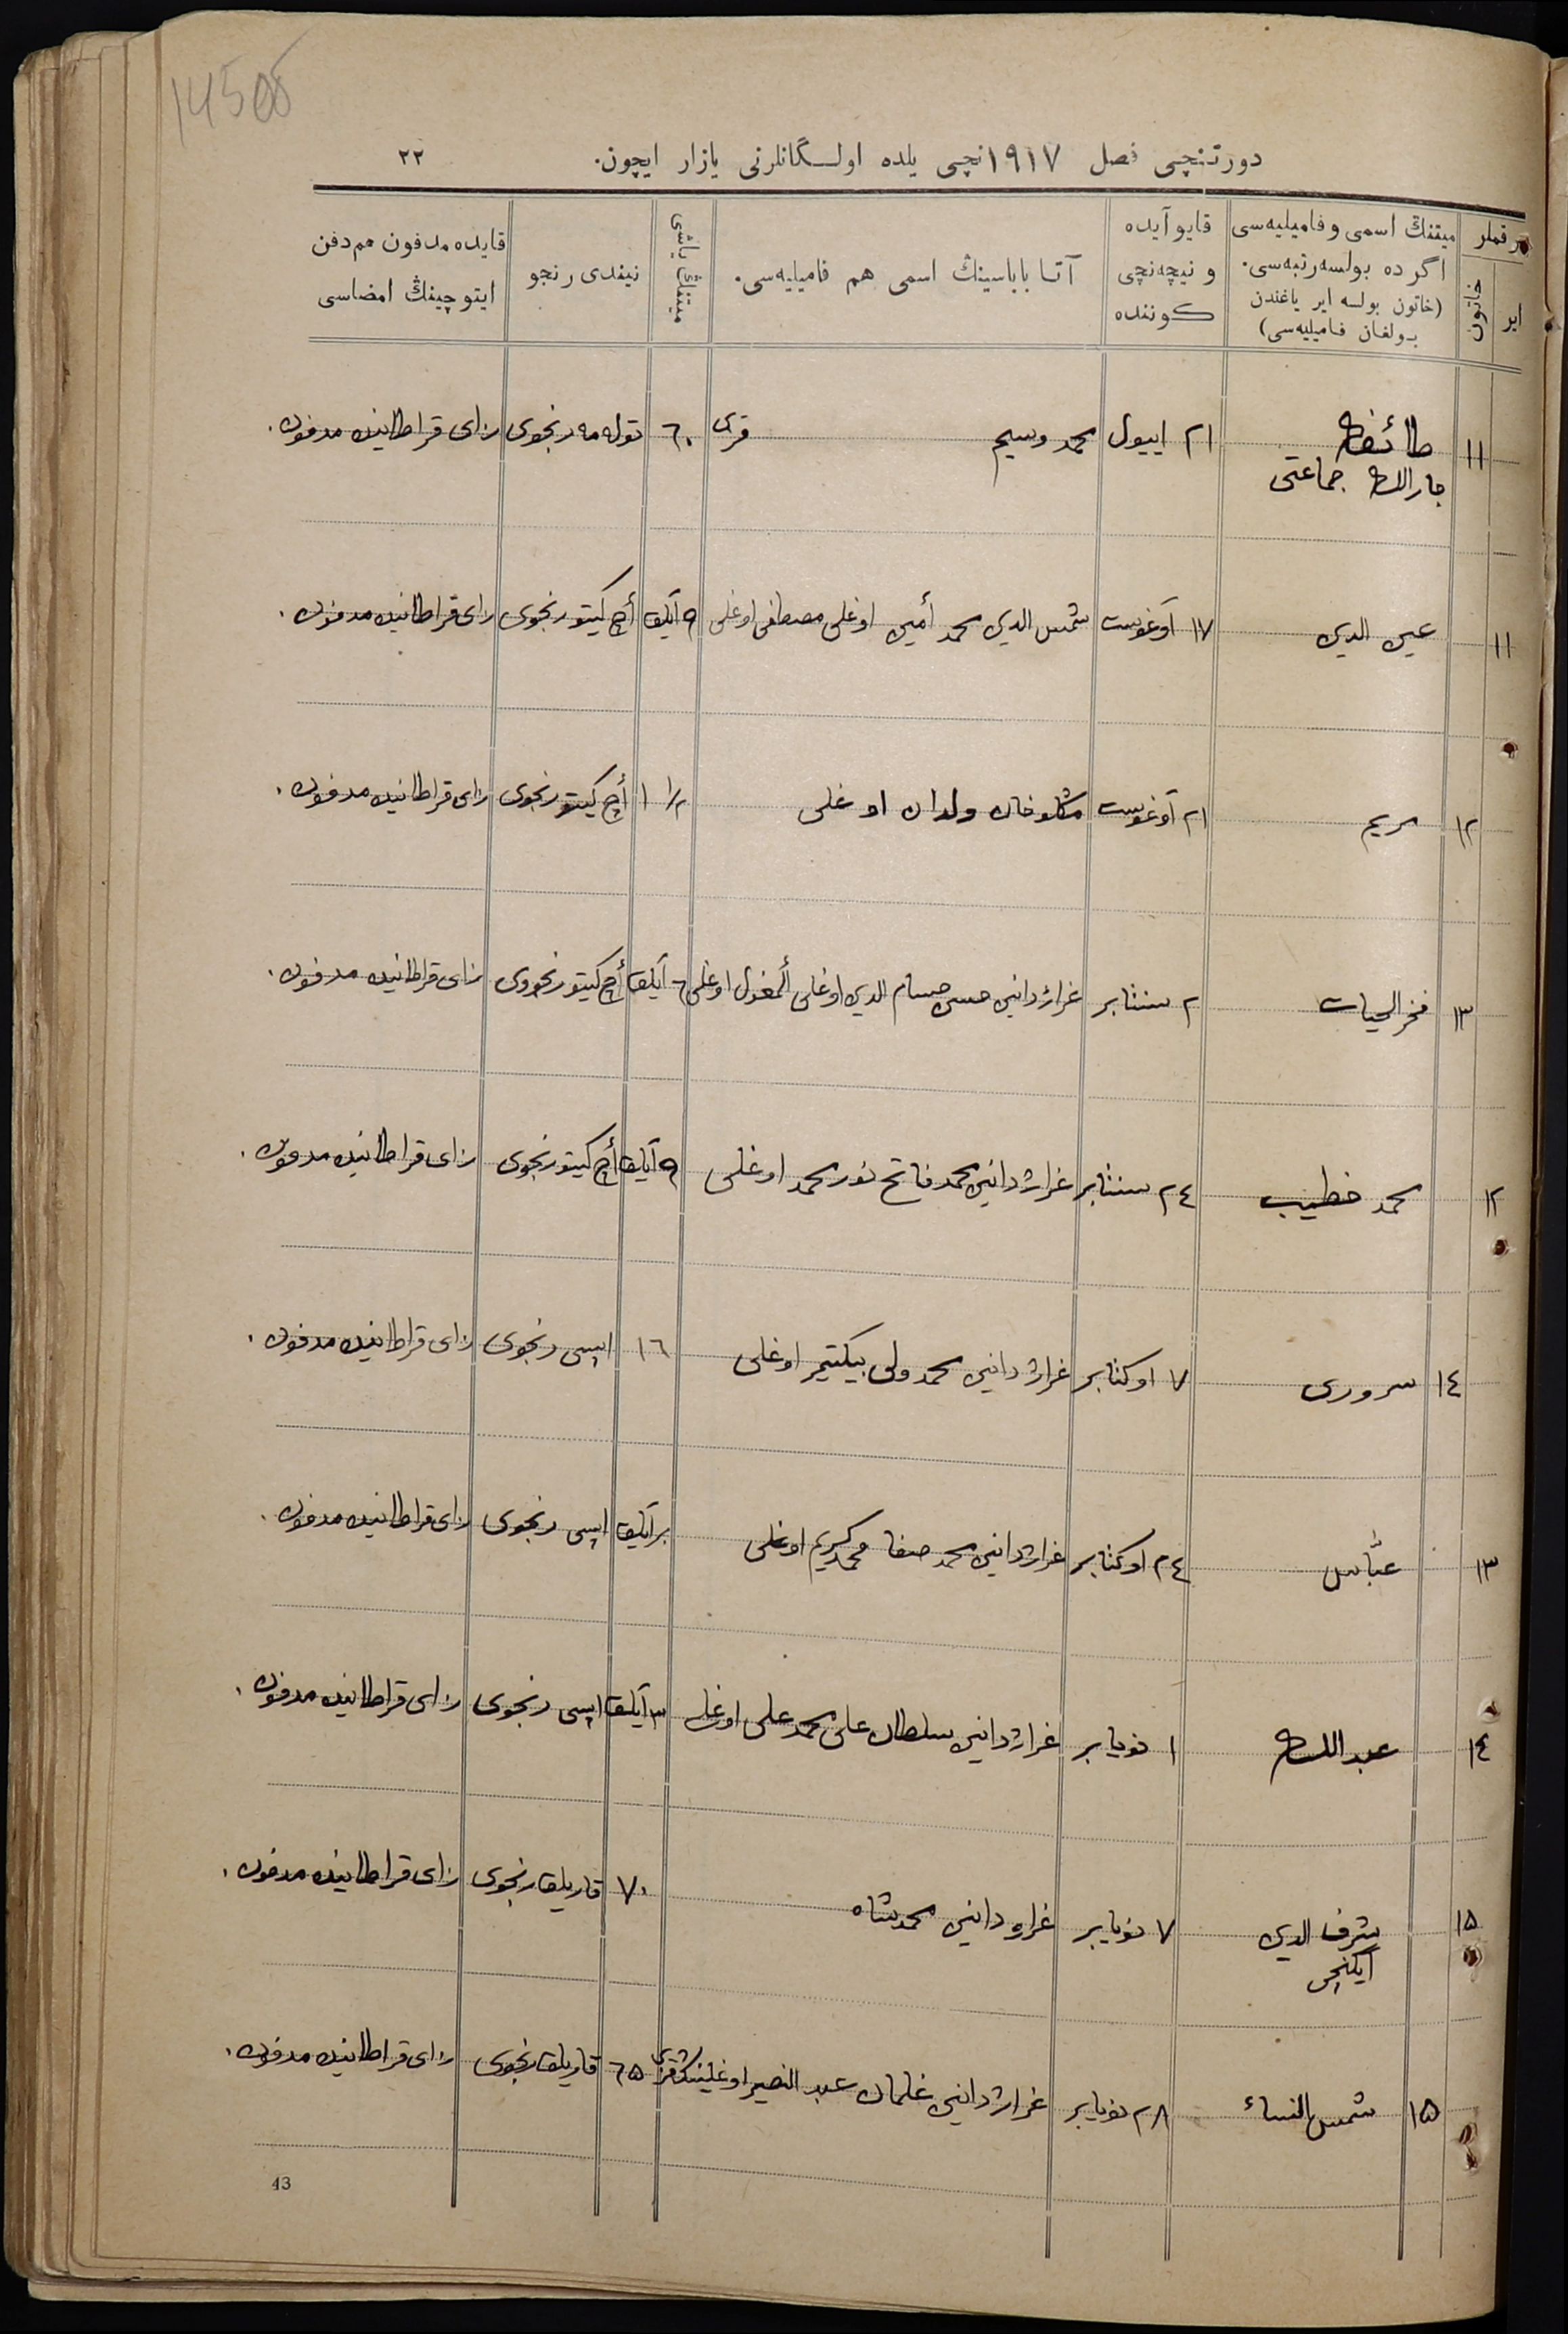 14505
دورتنچی فصل ۱۹۱۷نچی یلده اولـگانلرنی یازار ایچون. ۲۲
رقملر
ایر
خاتون
میتنڭ اسمی و فامیلیه‌سی
اگر ده بولسه رتبه‌سی.
(خاتون بولسه ایر یاغندن
بولغان فامیلیه‌سی)
قایو آیده
و نیچه‌نچی
کوننده
آتا باباسینڭ اسمی هم فامیلیه‌سی.
میتنڭ یاشی
نیندی رنجو
قایده مدفون هم دفن
ایتوچینڭ امضاسی
۱۱ طائفه ۲۱ اییول محمد وسیم قزی ٦٠ توله‌مه رنجوی زای قراطاینده مدفون.
جارالله جماعتی
۱۱ عین الدین ۱۷ آوغوست شمس الدین محمد أمین اوغلی مصطفی اوغلی ۹ آیلق أچ کیتو رنجوی زای قراطاینده مدفون.
۱۲ مریم ۲۱ آوغوست ولدان اوغلی ۱ ۱/۲ أچ کیتو رنجوی زای قراطاینده مدفون.
۱۳ فخر الحیات ۲ سنتابر غراژدانین حسن حسام الدین اوغلی ألمغول اوغلی ٦ آیلق أچ کیتو رنجووی زای قراطاینده مدفون.
۱۲ محمد خطیب ۲٤ سنتابر غراژدانین محمد فاتح نور محمد اوغلی ۹ آیلق أچ کیتو رنجوی زای قراطاینده مدفون.
۱٤ سروری ۷ اوکتابر غراژدانین محمد ولی بیکتیمر اوغلی ۱٦ اپسی رنجوی زای قراطاینده مدفون.
۱۳ عبّاس ۲٤ اوکتابر غراژدانین محمد صفا محمد کریم اوغلی بر آیلق اپسی رنجوی زای قراطاینده مدفون.
۱٤ عبد الله ۱ نویابر غراژدانین سلطان علی محمد علی اوغلی ۳ آیلق اپسی رنجوی زای قراطاینده مدفون.
۱۵ شرف الدین ۷ نویابر غراژدانین محمدشاه ۷۰ قاریلق رنجوی زای قراطاینده مدفون.
ایکنچی
۱۵ شمس النساء ۲۸ نویابر غراژدانین غلمان عبد النصیر اوغلینڭ قزی ٦۵ قاریلق رنجوی زای قراطاینده مدفون.
43